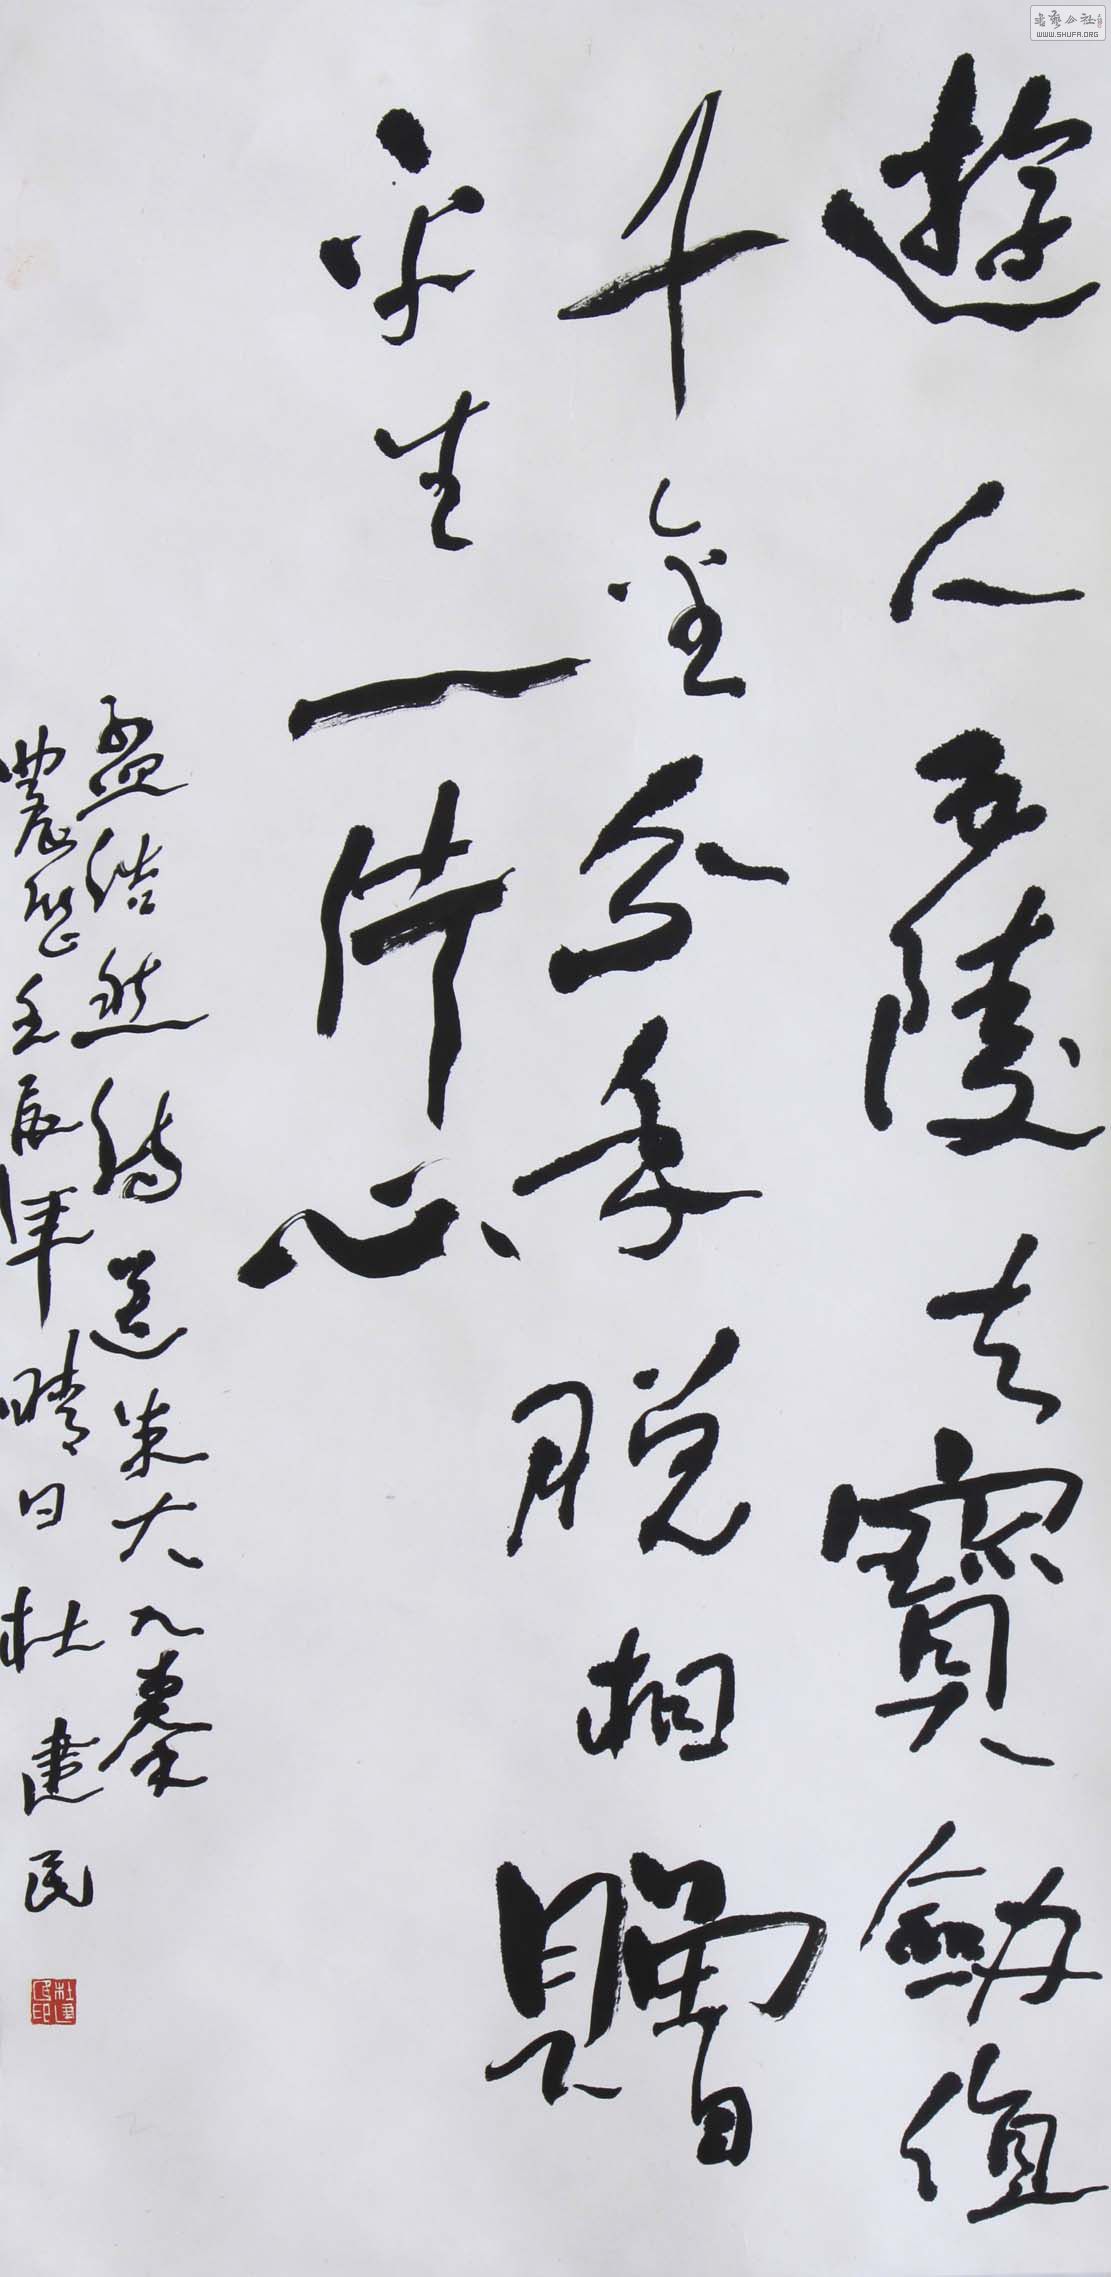 遊人五陵去寶劍值
千金分手脫相贈
平生一片心
孟浩然詩送朱大入秦
農歷壬辰年晴日杜建民
杜建民印
書藝公社
WWW.SHUFA.ORG